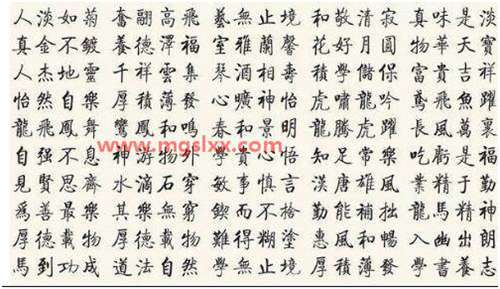 人淡如菊 奮翮高飛 藝無止境 和敬清寂 真味是淡
真金不鍍 養德澤福 室雅蘭馨 花好月圓 物華天寶
人杰地靈 千祥雲集 琴 酒相壽 學儲保 富貴吉祥
怡然自樂 厚積薄發 心曠神怡 虎嘯龍吟 鳶飛魚躍
龍飛鳳舞 鸞鳳和鳴 春和景明 龍騰虎躍 長風萬裏
自强不息 神游物外 學貫心悟 知足常樂 吃虧是福
見賢思齊 水滴石穿 敏事慎言 漢唐雄風 業精于勤
爲善最樂 其樂無窮 鍥而不捨 勤能補拙 龍馬精神
厚德載物 難得糊塗 惠風和暢 入幽出朗
馬到功成 道法自然 學無止境 厚積薄發 學書養志
www.mgslxx.com